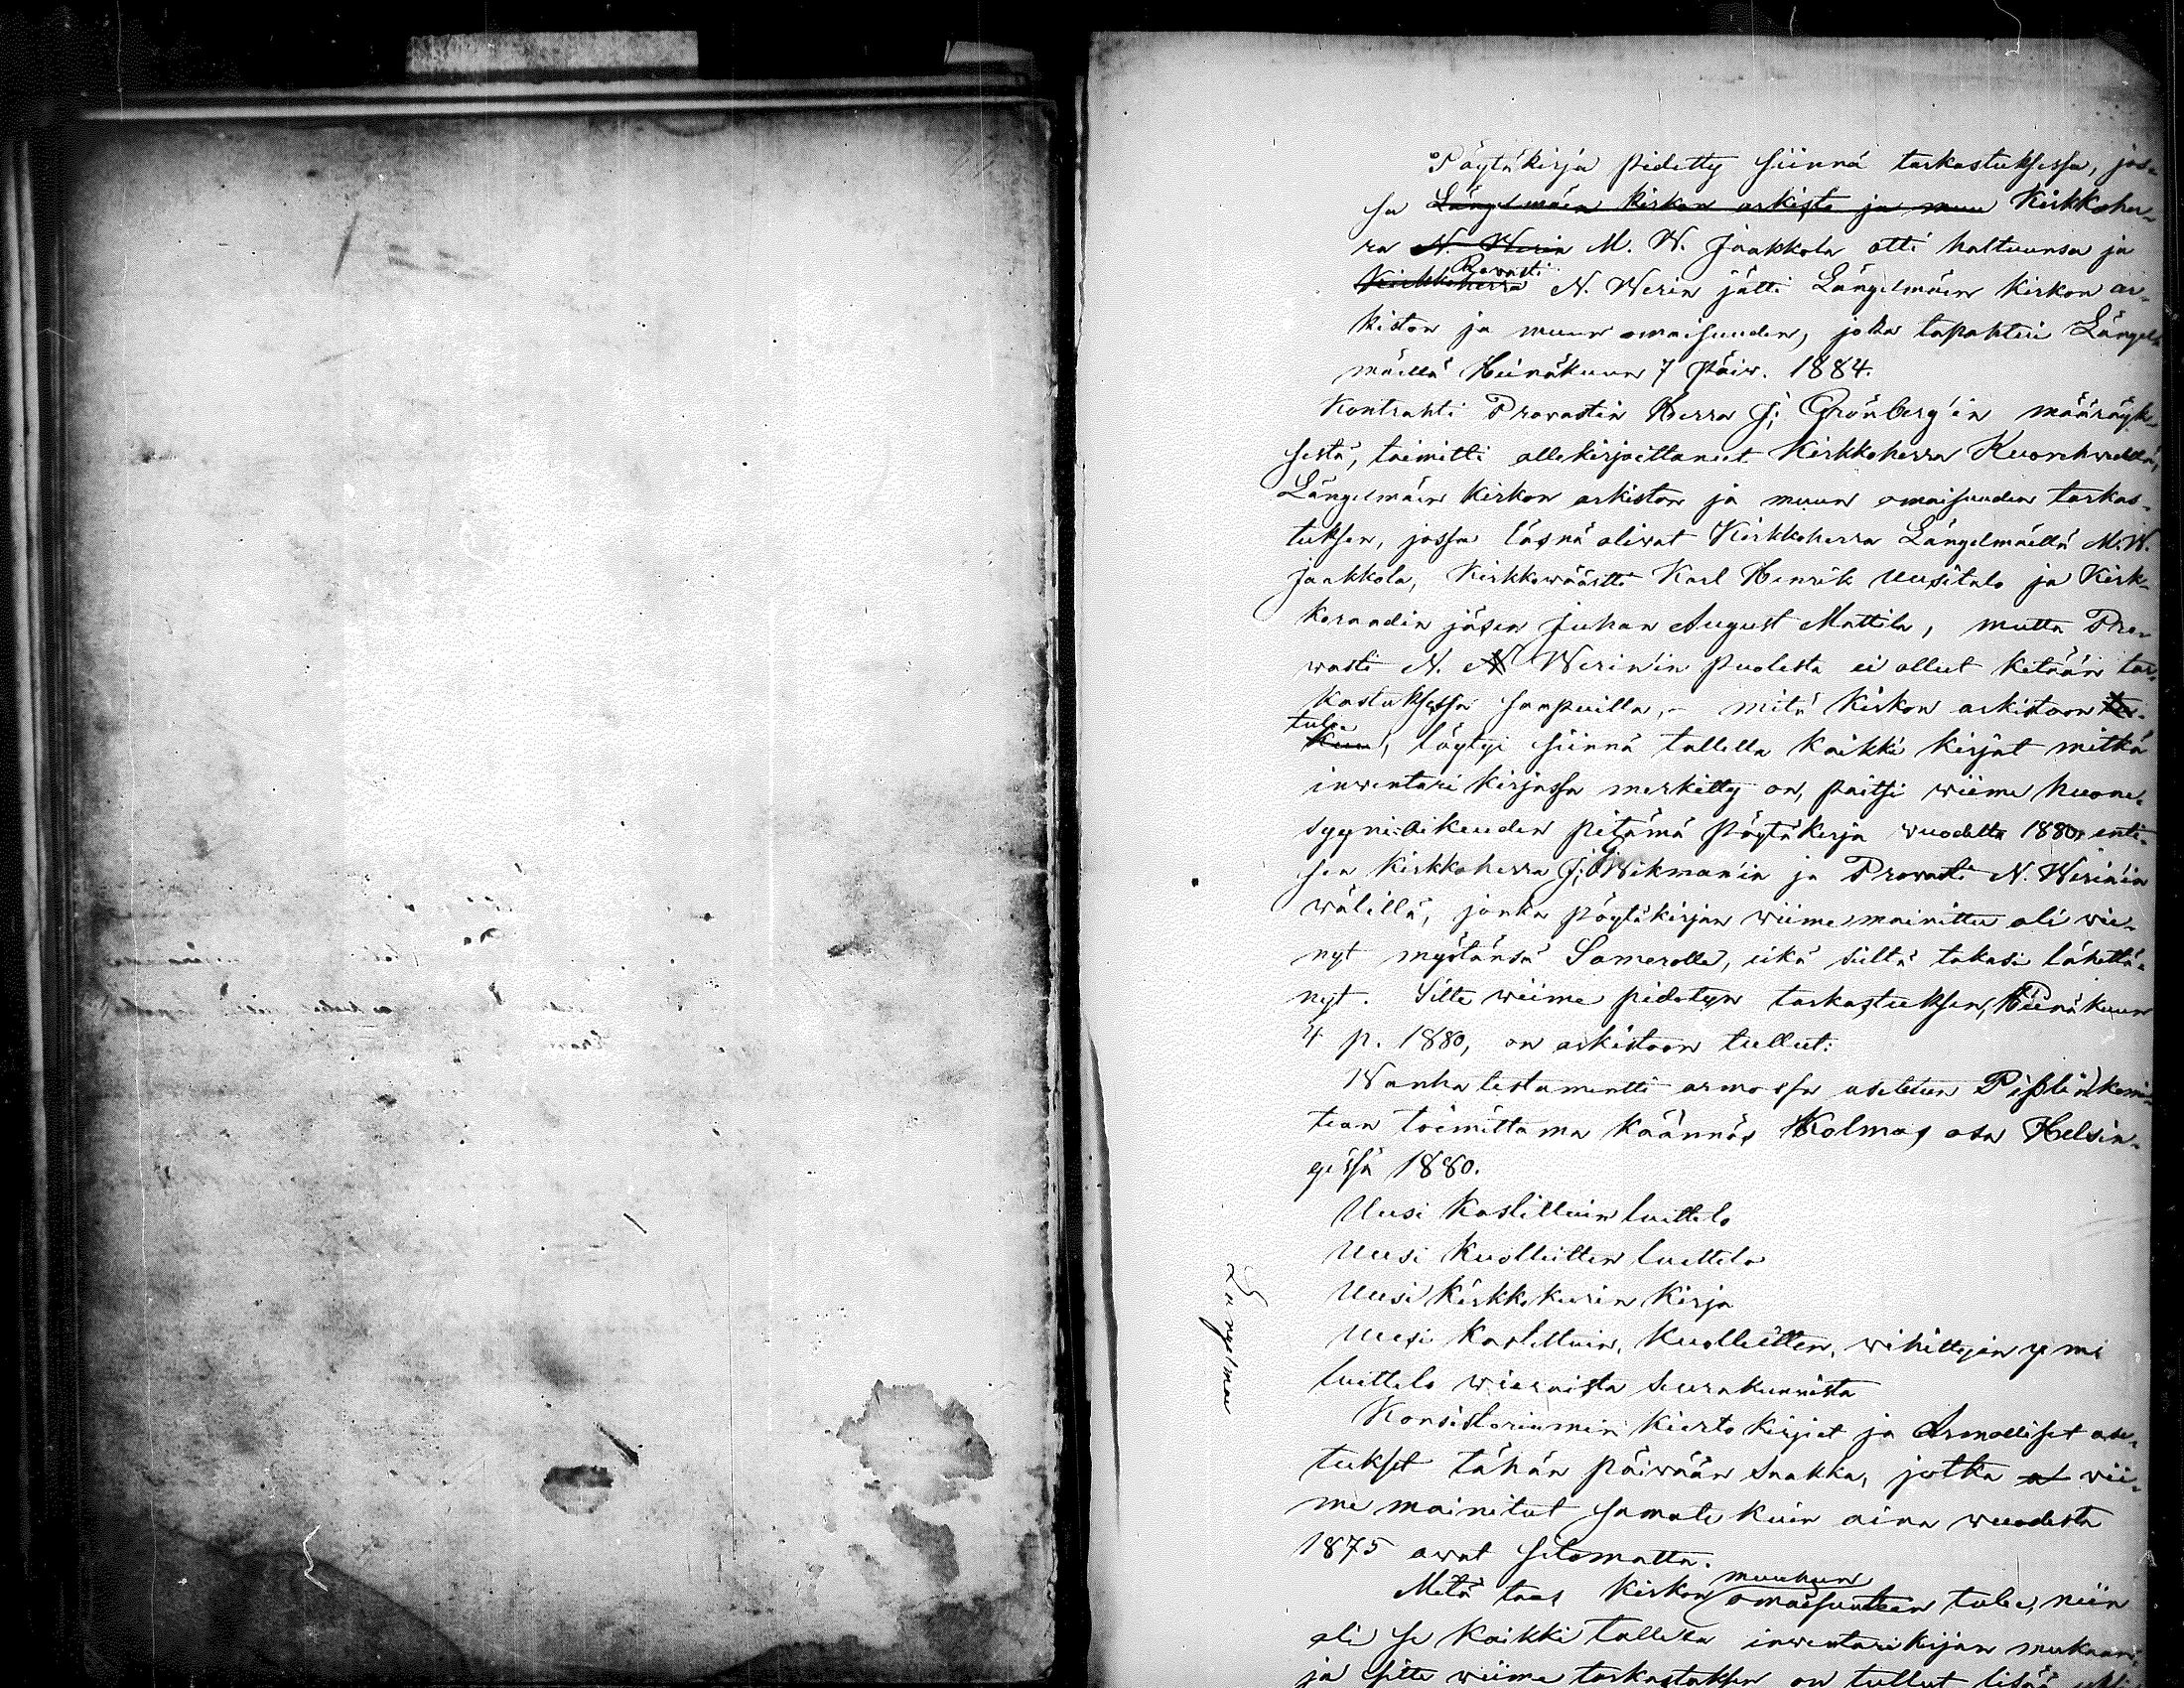 Pöytäkirja pidetty siinnä tarkastuksessa, jos-
sa Längelmäen kirkon arkisto ja muu Kirkkoher-
ra N. Werin M. W. Jaakkola otti haltuunsa ja
Kirkkoherra Prowasti N. Werin jätti Längelmäen kirkon ar-
kiston ja muun omaisuuden, joka tapahtui Längel-
mäellä Heinäkuun 7 päiw. 1884.
Kontrahti Prowastin Herra J. Grönberg'in määräyk-
sestä, toimitti allekirjoittanut Kirkkoherra Kuorehwedellä,
Längelmäen kirkon arkiston ja muun omaisuuden tarkas-
tuksen, jossa läsnä oliwat Kirkkoherra Längelmäellä M. W.
Jaakkola, Kirkkowäärtti Karl Henrik Uusitalo ja Kirk-
koraadin jäsen Juhan August Mattila, mutta Pro-
wasti N. Werin'in puolesta ei ollut ketään tar-
kastuksessa saapuilla,- mitä kirkon arkistoon
tulee, löytyi siinnä tallella kaikki kirjat mitkä
inwentari kirjassa merkitty on, paitsi wiime huone-
syyni-oikeuden pitämä pöytäkirja wuodelta 1880, enti-
sen Kirkkoherra J. G. Wikman'in ja Prowasti N. Werin'in
wälillä, jonka pöytäkirjan wiime mainittu oli wie-
nyt myötänsä Somerolle, eikä sieltä takasi lähettä-
nyt. Sitte wiime pidetyn tarkastuksen, Heinäkuun
4 p. 1880, on arkistoon tullut:
Wanha testamentti armossa asetetun Piplia komi-
tean toimittama käännös Kolmas osa Helsin-
gissä 1880.
Uusi Kastittuin luettelo
Uusi Kuolleitten luettelo
Uusi Kirkkokurin Kirja
Uusi Kastettuin, Kuolleitten, wihittyjen y. m.
luettelo wieraista seurakunnista
Konsistoriumin kierto kirjeet ja Armolliset ase-
tukset tähän päiwään saakka, jotka at wii-
me mainitut samate kuin aina wuodesta
1875 owat sitomatta.
Mitä taas kirkon muuhun omaisuuteen tulee, niin
oli se kaikki tallella inwentarikirjan mukaan,
ja sitte wiime tarkastuksen on tullut lisää
Längelmäe